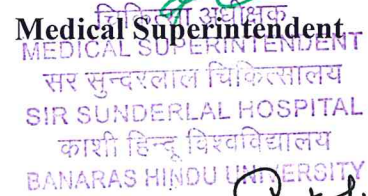 चिकित्सा अधीक्षक
Medical Superintendent
MEDICAL SUPERINTENDENT
सर सुन्दरलाल चिकित्सालय
SIR SUNDERLAL HOSPITAL
काशी हिन्दू विश्वविद्यालय
BANARAS HINDU UNIVERSITY